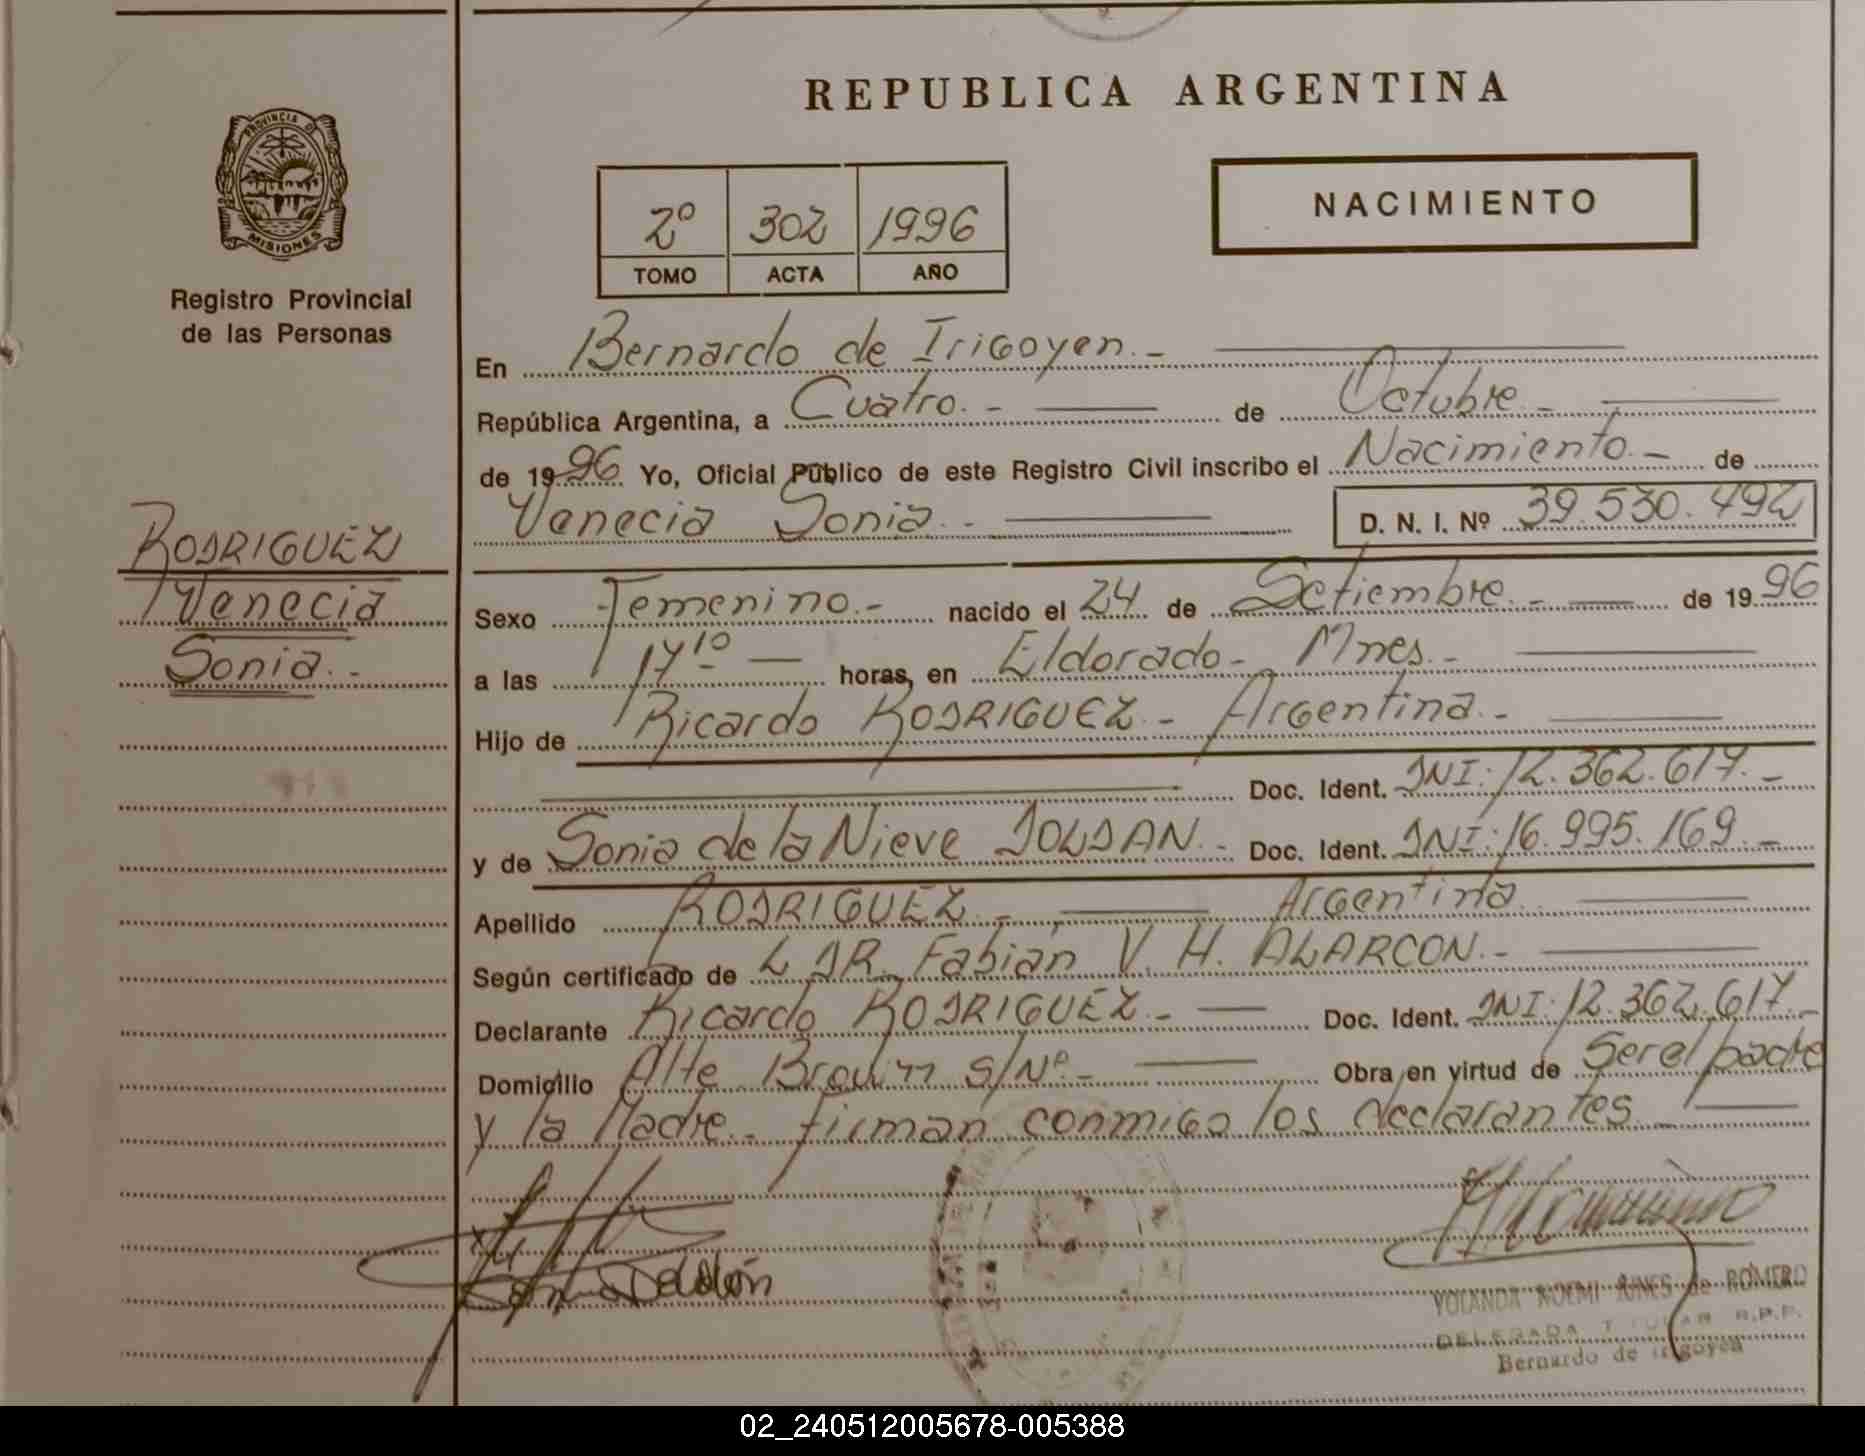 REPUBLICA ARGENTINA
PROVINCIA DE
MISIONES
Registro Provincial
de las Personas
NACIMIENTO
2º 302 1996
TOMO ACTA AÑO
En Bernardo de Irigoyen.-
República Argentina, a Cuatro.- de Octubre.-
de 1996 Yo, Oficial Público de este Registro Civil inscribo el Nacimiento.- de
Venecia Sonia.- D. N. I. Nº 39.530.492
RODRIGUEZ
Venecia
Sonia.-
Sexo Femenino.- nacido el 24 de Setiembre.- de 1996
a las 17¹⁰ horas, en Eldorado- Mnes.-
Hijo de Ricardo RODRIGUEZ.- Argentina.-
Doc. Ident. DNI: 12.362.617.-
y de Sonia de la Nieve DOLDAN.- Doc. Ident. DNI: 16.995.169.-
Apellido RODRIGUEZ.- Argentina
Según certificado de DR. Fabián V. H. ALARCON.-
Declarante Ricardo RODRIGUEZ.- Doc. Ident. DNI: 12.362.617.-
Domicilio Alte Brown s/Nº.- Obra en virtud de Ser el padre
y la Madre.- firman conmigo los declarantes.-
Sonia Doldán
YOLANDA NOEMI JUNES de ROMERO
DELEGADA TITULAR R.P.P.
Bernardo de Irigoyen
02_240512005678-005388